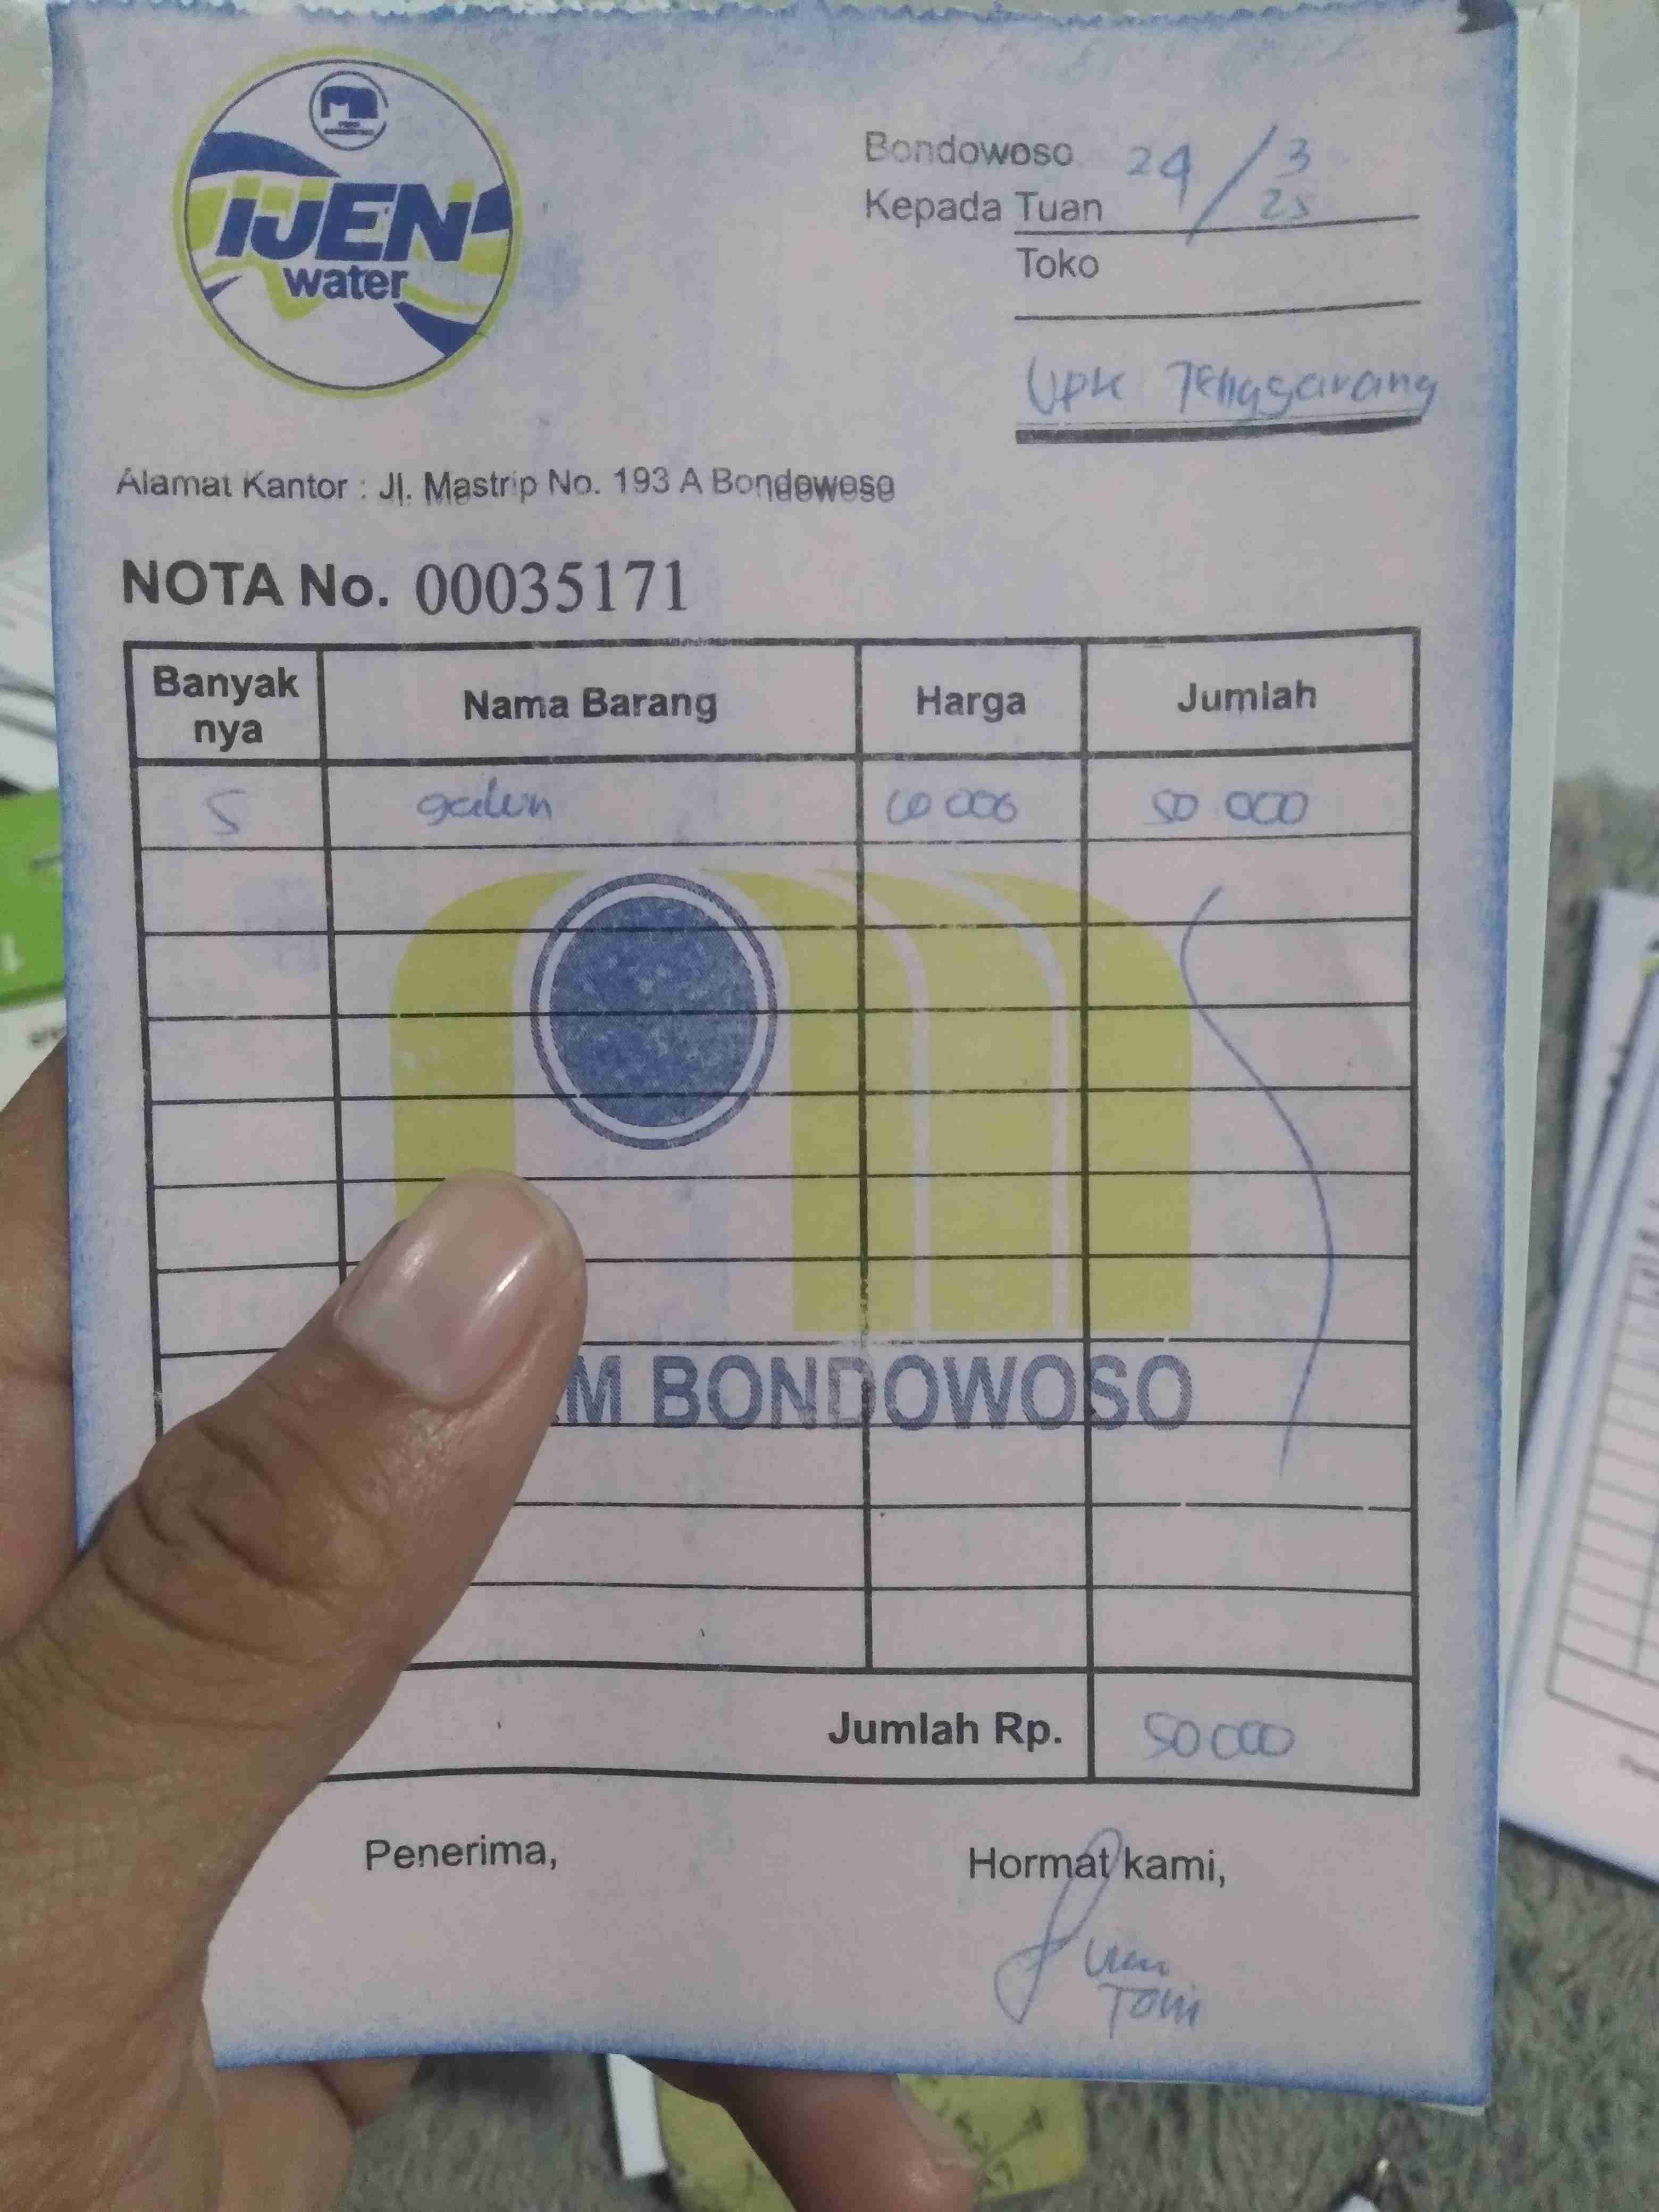 IJEN
water
Bondowoso 24/3 25
Kepada Tuan
Toko
UPK Tenggarang
Alamat Kantor : Jl. Mastrip No. 193 A Bondowoso
NOTA No. 00035171
Banyak nya Nama Barang Harga Jumlah
5 galon 10 000 50 000
M BONDOWOSO
Jumlah Rp. 50000
Penerima, Hormat kami,
Toni